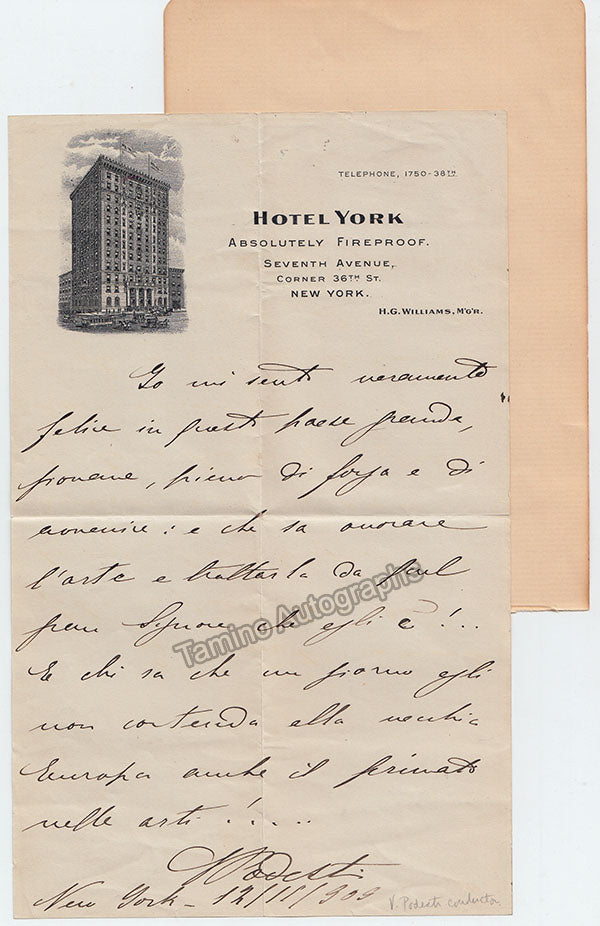 TELEPHONE, 1750-38TH.
HOTEL YORK
ABSOLUTELY FIREPROOF.
SEVENTH AVENUE,
CORNER 36TH ST.
NEW YORK.
H.G. WILLIAMS, M'G'R.
Io mi sento veramente
felice in questo paese grande,
giovane, pieno di forza e di
avvenire: e che sa onorare
l'arte e trattarla da quel
gran Signore che egli è!...
E chi sa che un giorno egli
non contenda alla vecchia
Europa anche il primato
nelle arti!.....
V Podesti
New York - 12/11/909
V. Podesti conductor
Tamino Autographs